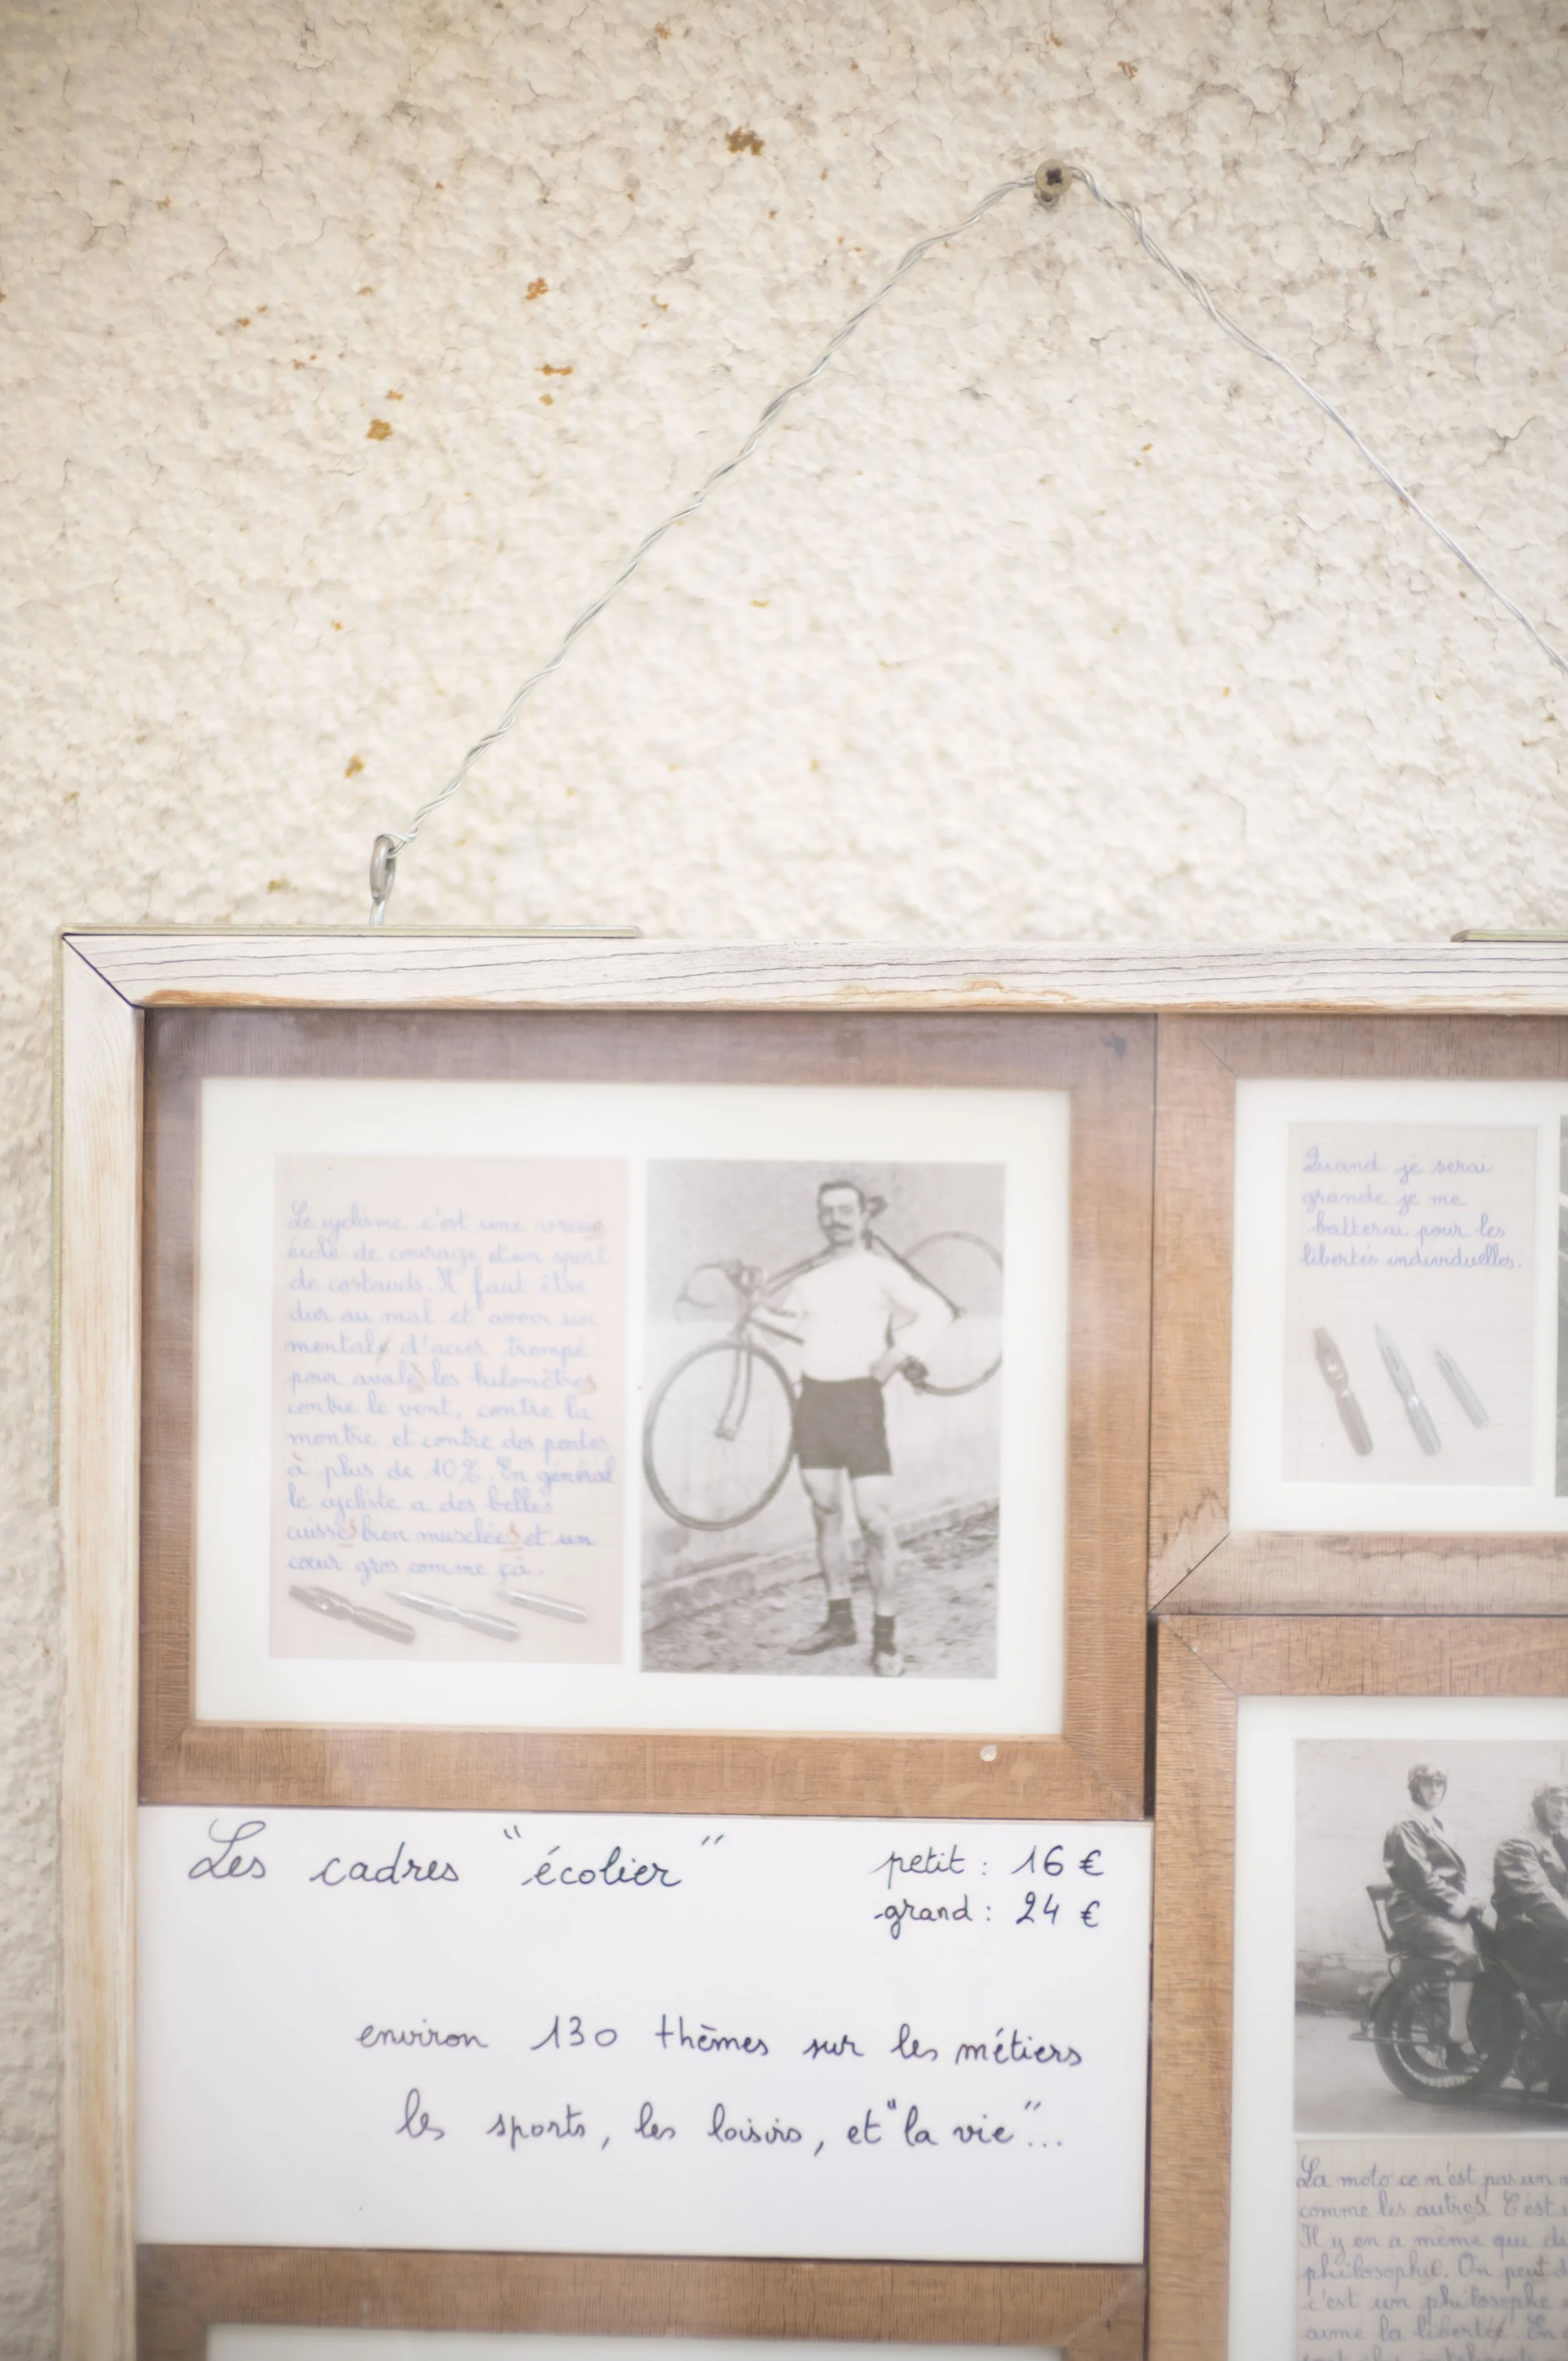 Le cyclisme c'est une vraie
école de courage et un sport
de costauds. Il faut être
dur au mal et avoir un
mental d'acier trempé
pour avaler les kilomètres
contre le vent, contre la
montre et contre des pentes
à plus de 10%. En général
le cycliste a des belles
cuisses bien musclées et un
cœur gros comme çà.
Quand je serai
grande je me
batterai pour les
libertés individuelles.
Les cadres "écolier"
petit : 16 €
grand : 24 €
environ 130 thèmes sur les métiers
les sports, les loisirs, et "la vie"...
La moto ce n'est pas un
comme les autres. C'est
Il y en a même qui
philosophie. On peut
c'est un philosophe
aime la liberté. En